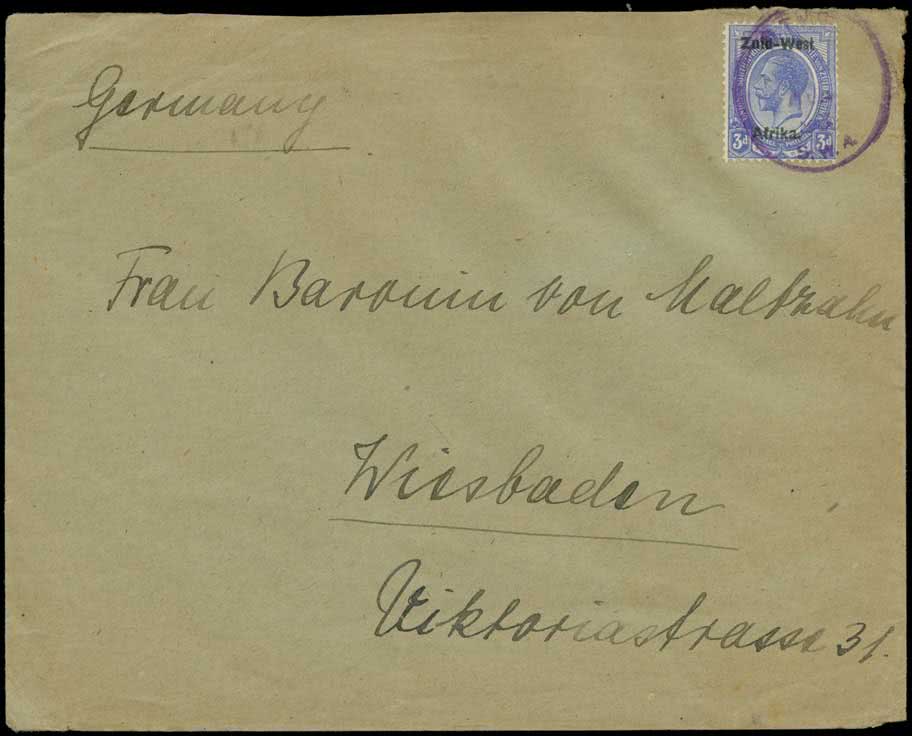 Zuid-West
Afrika.
3d 3d
S.W.A.
Germany
Frau Baronin von Maltzahn
Wiesbaden
Viktoriastrasse 31.